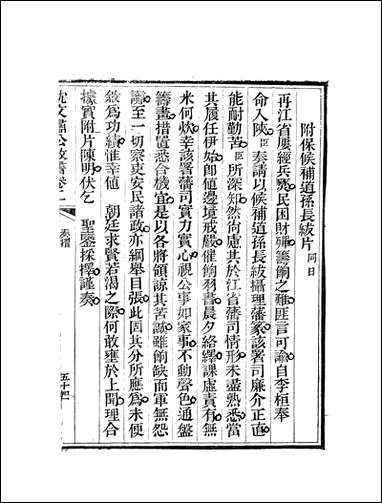 附保候補道孫長紱片 同日
再江省屢經兵燹民困財殫籌餉之難匪言可諭自李桓奉
命入陝臣奏請以候補道孫長紱攝理藩篆該署司廉介正直
能耐勤苦臣所深知然尚慮其於江省藩司情形未盡熟悉當
其履任伊始卽值邊境戒嚴催餉羽書晨夕絡繹課虛責有無
米何炊幸該署藩司實力實心視公事如家事不動聲色通盤
籌畫措置悉合機宜是以各將領諒其苦誠雖餉缺而軍無怨
讟至一切察吏安民諸政亦綱舉目張此固其分所應爲未便
敘爲功績惟幸値 朝廷求賢若渴之際何敢壅於上聞理合
據實附片陳明伏乞 聖鑒採擇謹奏
沈文肅公政書卷二 奏摺 五十四